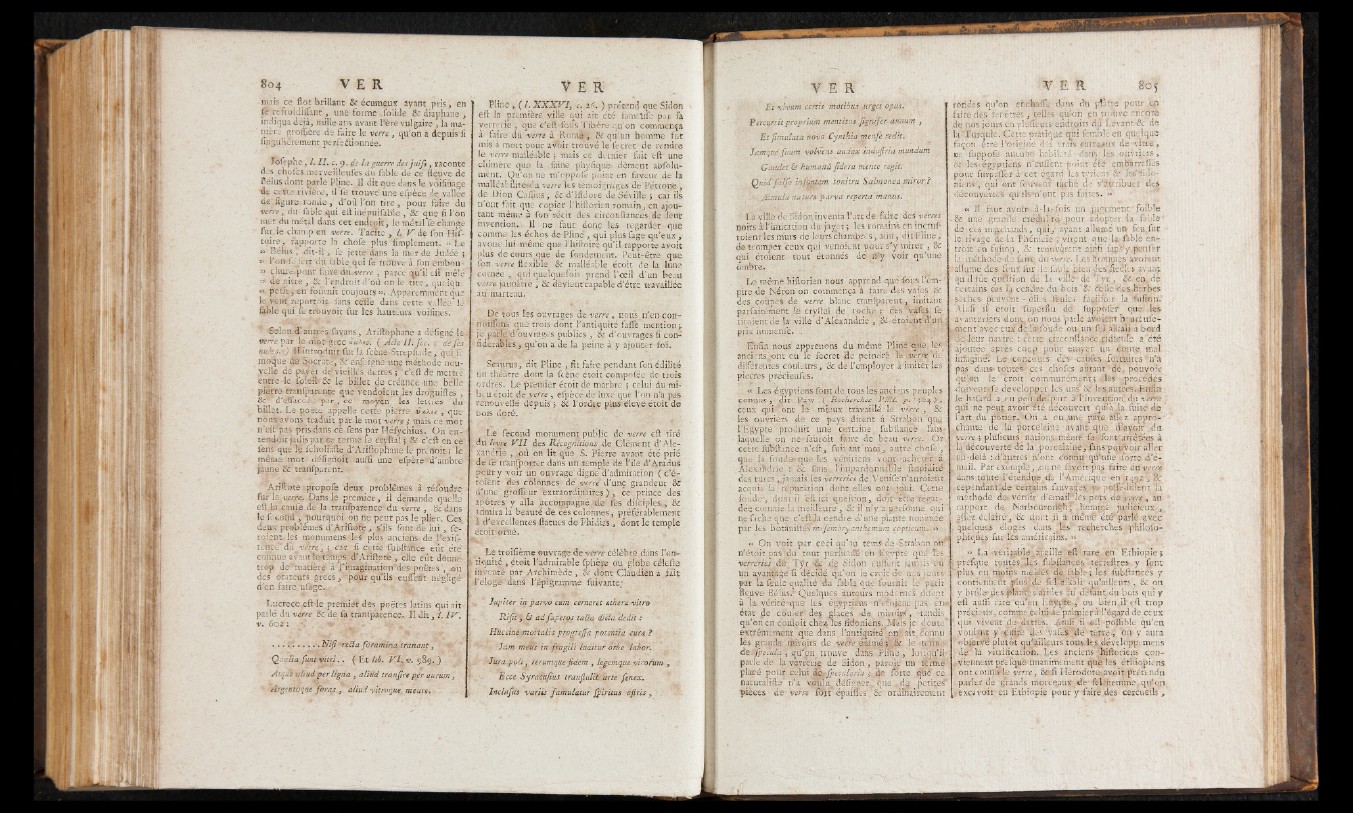 804 VER
mais ce flot brillant & écumeux ayant pris, en
se refroidissant, une forme solide & diaphane,
indiqua déjà, mille ans avant l'ère vulgaire, la ma-
nière grossière de faire le verre, qu'on a depuis si
singulièrement perfectionnée.
Josephe, l. II. c. 9. de la guerre des juifs, raconte
des choses merveilleuses au sable de ce fleuve de
Bélus dont parle Pline. Il dit que dans le voisinage
de cette rivière, il se trouve une espèce de vallée
de figure ronde, d'où l'on tire, pour faire du
verre, du sable qui est inépuisable, & que si l'on
met du métal dans cet endroit, le métal se change
sur le champ en verre. Tacite, l. V de son His-
toire, rapporte la chose plus simplement. « Le
» Bélus, dit-il, se jette dans la mer de Judée ;
» l'on se sert du sable qui se trouve à son embou-
» chure pour faire du verre, parce qu'il est mêlé
» de nitre, & l'endroit d'où on le tire, quoique
» petit, en fournit toujours ». Apparemment que
le vent reportoit sans cesse dans cette vallée le
sable qui se trouvoit sur les hauteurs voisines.
Selon d'autres savans, Aristophane a désigné le
verre par le mot grec
Il introduit sur la scène Strepsiade, qui se
moque de Socrate, & enseigne une méthode nou-
velle de payer de vieilles dettes ; c'est de mettre
entre le soleil & le billet de créance une belle
pierre transparente que vendoient les droguistes,
& d'effacer par ce moyen les lettres du
billet. Le poète appelle cette pierre ὕαλος, que
nous avons traduit par le mot verre ; mais ce mot
n'est pas pris dans ce sens par Hésychius. On en-
tendoit jadis par ce terme le crystal ; & c'est en ce
sens que le scholiaste d'Aristophane le prenoit ; le
même mot désignoit aussi une espèce d'ambre
jaune & transparent.
Aristote propose deux problêmes à résoudre
sur le verre. Dans le premier, il demande quelle
est la cause de la transparence du verre, & dans
le second, pourquoi on ne peut pas le plier. Ces
deux problêmes d'Aristote, s'ils sont de lui, se-
roient les monumens les plus anciens de l'exis-
tence du verre, car si cette substance eût été
connue avant le temps d'Aristote, elle eût donné
trop de matière à l'imagination des poètes, ou
des orateurs grecs, pour qu'ils eussent négligé
d'en faire usage.
Lucrece est le premier des poètes latins qui ait
parlé du verre & de sa transparence. Il dit, l. IV,
v. 602 :
. . . . . . . . . . Nisi recta foramina tranant,
Qualia sunt vitri. . ( Et lib. VI, v. 989. )
Atque aliud per ligna, aliud transire per aurum,
Argentoque foras, aliud vitroque meare.
VER
Pline, ( l. XXXVI, c. 26. ) prétend que Sidon
est la première ville qui ait été fameuse par sa
verrerie, que c'est sous Tibère qu'on commença
à faire du verre à Rome, & qu'un homme fut
mis à mort pour avoir trouvé le secret de rendre
le verre malléable ; mais ce dernier fait est une
chimère que la saine physique dément absolu-
ment. Qu'on ne m'oppose point en faveur de la
malléabilité du verre les témoignages de Pétrone,
de Dion Cassius, & d'Isidore de Séville ; car ils
n'ont fait que copier l'historien romain, en ajou-
tant même à son récit des circonstances de leur
invention. Il ne faut donc les regarder que
comme les échos de Pline, qui plus sage qu'eux,
avoue lui même que l'histoire qu'il rapporte avoit
plus de cours que de fondement. Peut-être que
son verre flexible & malléable étoit de la lune
cornée, qui quelquefois prend l'œil d'un beau
verre jaunâtre, & devient capable d'être travaillée
au marteau.
De tous les ouvrages de verre, nous n'en con-
noissons que trois dont l'antiquité fasse mention ;
je parle d'ouvrages publics, & d'ouvrages si con-
sidérables, qu'on a de la peine à y ajouter foi.
Scaurus, dit Pline, fit faire pendant son édilité
un théatre dont la scène étoit composée de trois
ordres. Le premier étoit de marbre ; celui du mi-
lieu étoit de verre, espèce de luxe que l'on n'a pas
renouvellé depuis ; & l'ordre plus élevé étoit de
bois doré.
Le second monument public de verre est tiré
du livre VII des Récognitions de Clément d'Ale-
xandrie, où on lit que S. Pierre ayant été prié
de se transporter dans un temple de l'île d'Aradus
pour y voir un ouvrage digne d'admiration ( c'é-
toient des colonnes de verre d'une grandeur &
d'une grosseur extraordinaires ), ce prince des
apôtres y alla accompagné de ses disciples, &
admira la beauté de ces colonnes, préférablement
à d'excellentes statues de Phidias, dont le temple
étoit orné.
Le troisième ouvrage de verre célèbre dans l'an-
tiquité, étoit l'admirable sphère ou globe céleste
inventé par Archimède, & dont Claudien a fait
l'éloge dans l'épigramme suivante :
Jupiter in parvo cum cerneret æthera vitro
Risit, & ad superos talia dicta dedit :
Huccine mortalis progressa potentia curæ ?
Jam meus in fragili luditur orbe labor.
Jura poli, rerumque fidem, legemque virorum,
Ecce Syracusius transtulit arte senex.
Inclusus variis famulatur spiritus astris,
VER
Et vivum certis motibus urget opus.
Percurrit proprium mentitus signifer annum,
Et simulata novo Cynthia mense redit.
Jamque suum volvens audax industria mundum
Gaudet & humanâ sidera mente regit.
Quid falso insontem tonitru Salmonea miror ?
Æmula naturæ parva reperta manus.
La ville de Sidon inventa l'art de faire des verres
noirs à l'imitation du jayet ; les romains en incrus-
toient les murs de leurs chambres, afin, dit Pline,
de tromper ceux qui venoient pour s'y mirer, &
qui étoient tout étonnés de n'y voir qu'une
ombre.
Le même historien nous apprend que sous l'em-
pire de Néron on commença à faire des vases &
des coupes de verre blanc transparent, imitant
parfaitement le crystal de roche ; ces vases se
tiroient de la ville d'Alexandrie, & étoient d'un
prix immense.
Enfin nous apprenons du même Pline que les
anciens ont eu le secret de peindre le verre de
différentes couleurs, & de l'employer à imiter les
pierres précieuses.
« Les égyptiens sont de tous les anciens peuples
connus, dit Paw ( Recherches Phil.
ceux qui ont le mieux travaillé le verre, &
les ouvriers de ce pays dirent à Strabon que
l'Egypte produit une certaine substance sans
laquelle on ne sauroit faire de beau verre. Or
cette substance n'est, suivant moi, autre chose,
que la soude que les vénitiens vont acheter à
Alexandrie : & sans l'impardonnable stupidité
des turcs, jamais les verreries de Venise n'auroient
acquis la réputation dont elles ont joui. Cette
soude, dont il est ici question, doit être regar-
dée comme la meilleure, & il n'y a personne qui
ne sache que c'est la cendre d'une plante nommée
par les botanistes mesembryanthemum copticum. »
« On voit par ceci qu'au tems de Strabon on
n'étoit pas du tout persuadé en Egypte que les
verreries de Tyr & de Sidon eussent jamais eu
un avantage si décidé qu'on le croit de nos jours
par la seule qualité du sable que fournit le petit
fleuve Bélus. Quelques auteurs modernes disent
à la vérité que les égyptiens n'étoient pas en
état de couler des glaces de miroirs, tandis
qu'on en couloit chez les sidoniens. Mais je doute
extrêmement que dans l'antiquité on ait connu
les grands miroirs de verre étamé ; & le terme
de specula, qu'on trouve dans Pline, lorsqu'il
parle de la verrerie de Sidon, paroît un terme
placé pour celui de specularia ; de sorte que ce
naturaliste n'a voulu désigner que de petites
pièces de verre fort épaisses & ordinairement
VER 805
rondes qu'on enchasse dans du plâtre pour en
faire des fenêtres, telles qu'on en trouve encore
de nos jours en plusieurs endroits du Levant & de
la Turquie. Cette pratique qui semble en quelque
façon être l'origine des vrais carreaux de vitre,
ne suppose aucune habileté dans les ouvriers,
& les égyptiens n'eussent point été embarrassés
pour surpasser à cet égard les tyriens & les sido-
niens, qui ont souvent taché de s'attribuer des
découvertes qu'ils n'ont pas faites. »
« Il faut avoir à-la-fois un jugement foible
& une grande crédulité pour adopter la fable
de ces marchands, qui, ayant allumé un feu sur
le rivage de la Phénicie, virent que le sable en-
troit en fusion, & trouvèrent ainsi sans y penser
la méthode de faire du verre. Les hommes avoient
allumé des feux sur le sable bien des siècles avant
qu'il fût question de la ville de Tyr, & en de
certains cas la cendre du bois & celle des herbes
sèches peuvent elles seules faciliter la fusion.
Ainsi il étoit superflu de supposer que les
avanturiers dont on nous parle avoient heureuse-
ment avec eux de la soude ou un sel alkali à bord
de leur navire : cette circonstance ridicule a été
ajoutée après coup pour étayer un conte mal
imaginé. Le concours des causes fortuites n'a
pas dans toutes ces choses autant de pouvoir
qu'on le croit communément ; les procédés
doivent se développer les uns & les autres. Enfin
le hasard a eu peu de part à l'invention du verre
qui ne peut avoir été découvert qu'à la suite de
l'art du potier. On a eu une pâte assez appro-
chante de la porcelaine avant que d'avoir du
verre ; plusieurs nations même se sont arrêtées à
la découverte de la porcelaine, sans pouvoir aller
au-delà ; d'autres n'ont connu qu'une sorte d'é-
mail. Par exemple, on ne savoit pas faire du verre
dans toute l'étendue de l'Amérique en 1492, &
cependant de certains sauvages y possédoient la
méthode de vernir d'émail les pots de terre, au
rapport de Narborough, homme judicieux,
assez éclairé, & dont il a même été parlé avec
quelques éloges dans les recherches philoso-
phiques sur les américains. »
« La véritable argille est rare en Ethiopie ;
presque toutes les substances terrestres y sont
plus ou moins mêlées de sable ; les substances y
contiennent plus de sel alkali qu'ailleurs, & on
y brûle des plantes salines au défaut du bois qui y
est aussi rare qu'en Egypte, ou bien il est trop
précieux, comme celui de palmier à l'égard de ceux
qui vivent de dattes. Aussi il est possible qu'en
voulant y cuire des vases de terre, on y aura
observé plutôt qu'ailleurs tous les développemens
de la vitrification. Les anciens historiens con-
viennent presque unanimement que les éthiopiens
ont connu le verre, & si Hérodote avoit prétendu
parler de grands morceaux de sel gemme, qu'on
excavoit en Ethiopie pour y faire des cercueils,